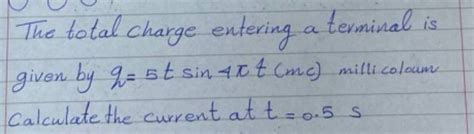 The total charge entering a terminal is
given by q = 5t sin 4π t (mc) milli coloum
Calculate the current at t = 0.5 s